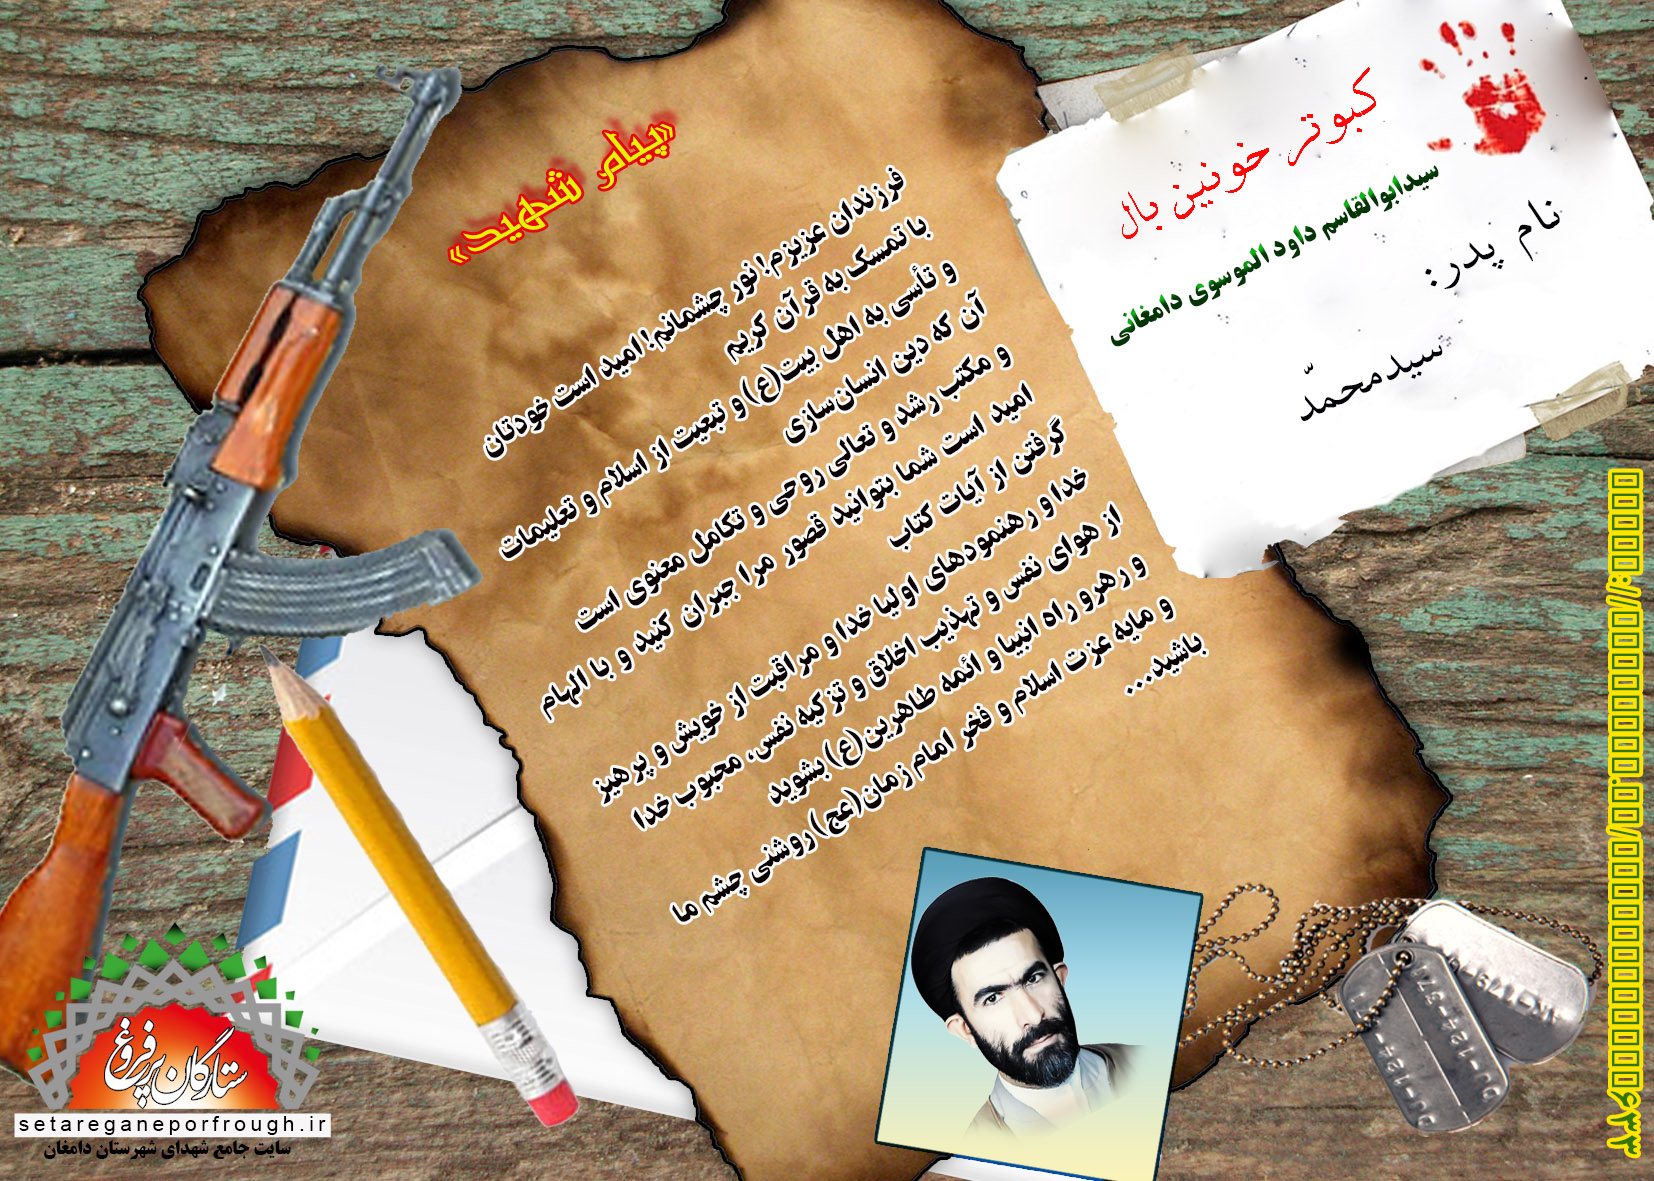 کبوتر خونین بال
سیدابوالقاسم داود الموسوی دامغانی
نام پدر:
سیدمحمدّ
«پیام شهید»
فرزندان عزیزم! نور چشمانم! امید است خودتان
با تمسک به قرآن کریم
و تأسی به اهل بیت(ع) و تبعیت از اسلام و تعلیمات
آن که دین انسان‌سازی
و مکتب رشد و تعالی روحی و تکامل معنوی است
امید است شما بتوانید قصور مرا جبران کنید و با الهام
گرفتن از آیات کتاب
خدا و رهنمودهای اولیا خدا و مراقبت از خویش و پرهیز
از هوای نفس و تهذیب اخلاق و تزکیه نفس، محبوب خدا
و رهرو راه انبیا و ائمه طاهرین(ع) بشوید
و مایه عزت اسلام و فخر امام زمان(عج) روشنی چشم ما
باشید...
ستارگان پرفروغ
setareganeporfrough.ir
سایت جامع شهدای شهرستان دامغان